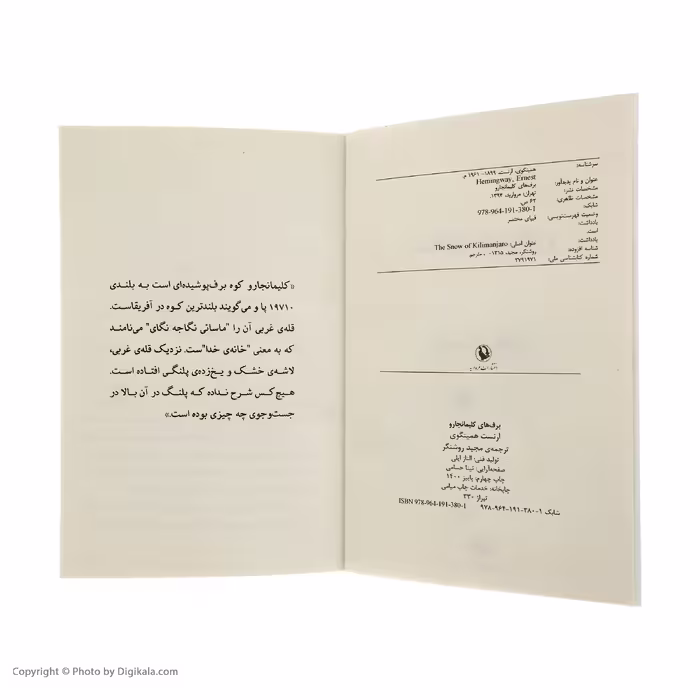 سرشناسه:
همینگوی، ارنست، ۱۸۹۹-۱۹۶۱ م.
Hemingway, Ernest
عنوان و نام پدیدآور:
برف‌های کلیمانجارو
مشخصات نشر:
تهران: مروارید، ۱۳۹۴.
مشخصات ظاهری:
۶۲ ص.
شابک:
978-964-191-380-1
وضعیت فهرست‌نویسی:
فیپای مختصر
یادداشت:
است.
یادداشت:
عنوان اصلی: The Snow of Kilimanjaro
شناسه افزوده:
روشنگر، مجید، ۱۳۱۵ - ، مترجم
شماره کتابشناسی ملی:
۳۷۹۱۹۷۱
انتشارات مروارید
برف‌های کلیمانجارو
ارنست همینگوی
ترجمه‌ی مجید روشنگر
تولید فنی: الناز ایلی
صفحه‌آرایی: نینا حسامی
چاپ چهارم: پاییز ۱۴۰۰
چاپخانه: خدمات چاپ میامی
تیراژ ۳۳۰
شابک ۱-۳۸۰-۱۹۱-۹۶۴-۹۷۸ ISBN 978-964-191-380-1
«کلیمانجارو کوه برف‌پوشیده‌ای است به بلندی
۱۹۷۱۰ پا و می‌گویند بلندترین کوه در آفریقاست.
قله‌ی غربی آن را "ماسائی نگاجه نگای" می‌نامند
که به معنی "خانه‌ی خدا"ست. نزدیک قله‌ی غربی،
لاشه‌ی خشک و یخ‌زده‌ی پلنگی افتاده است.
هیچ‌کس شرح نداده که پلنگ در آن بالا در
جست‌وجوی چه چیزی بوده است.»
Copyright © Photo by Digikala.com